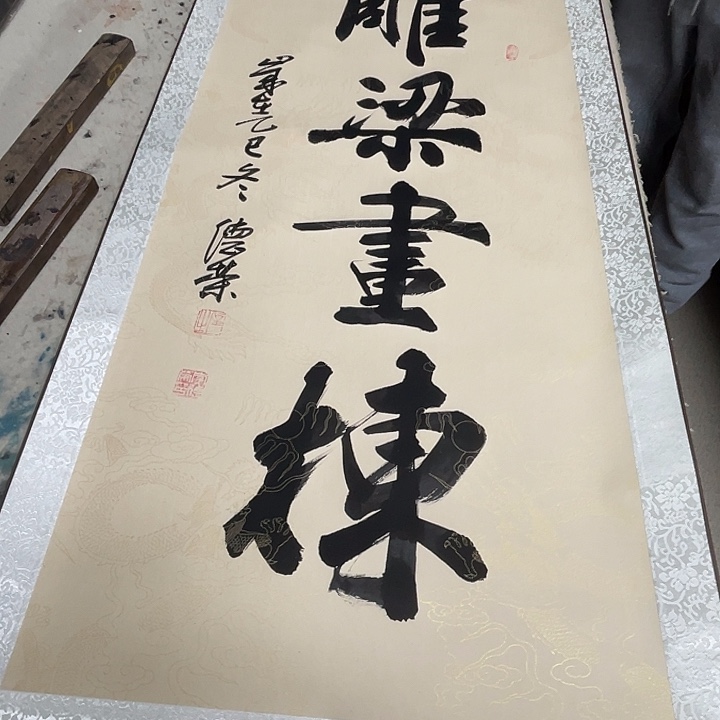 雕梁畫棟
歲在乙巳冬 德榮